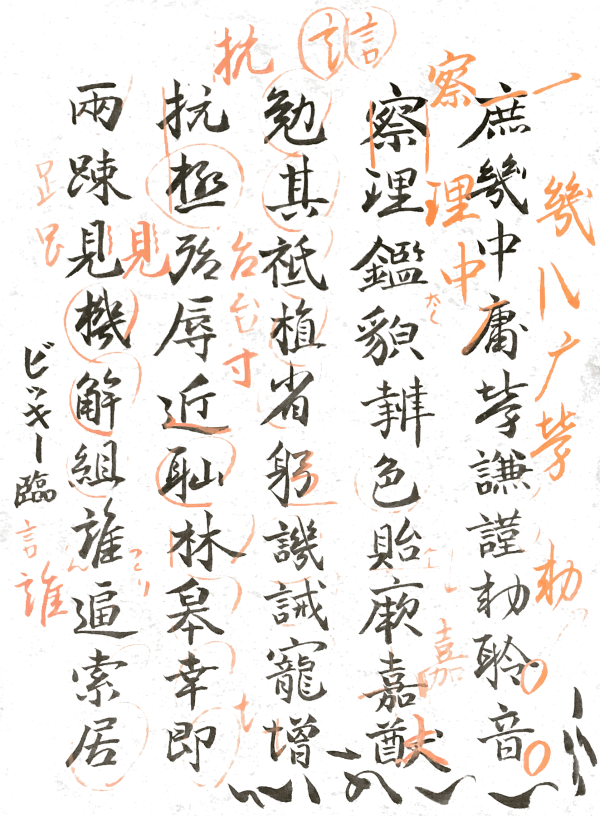 庶幾中庸勞謙謹勅聆音
察理鑑貌辨色貽厥嘉猷
勉其祗植省躬譏誡寵增
抗極殆辱近耻林皋幸即
兩踈見機解組誰逼索居
ビッキー臨
抗
言
言
察
理
中
幾
八
广
勞
勅
嘉
犬
見
台
台
寸
言
誰